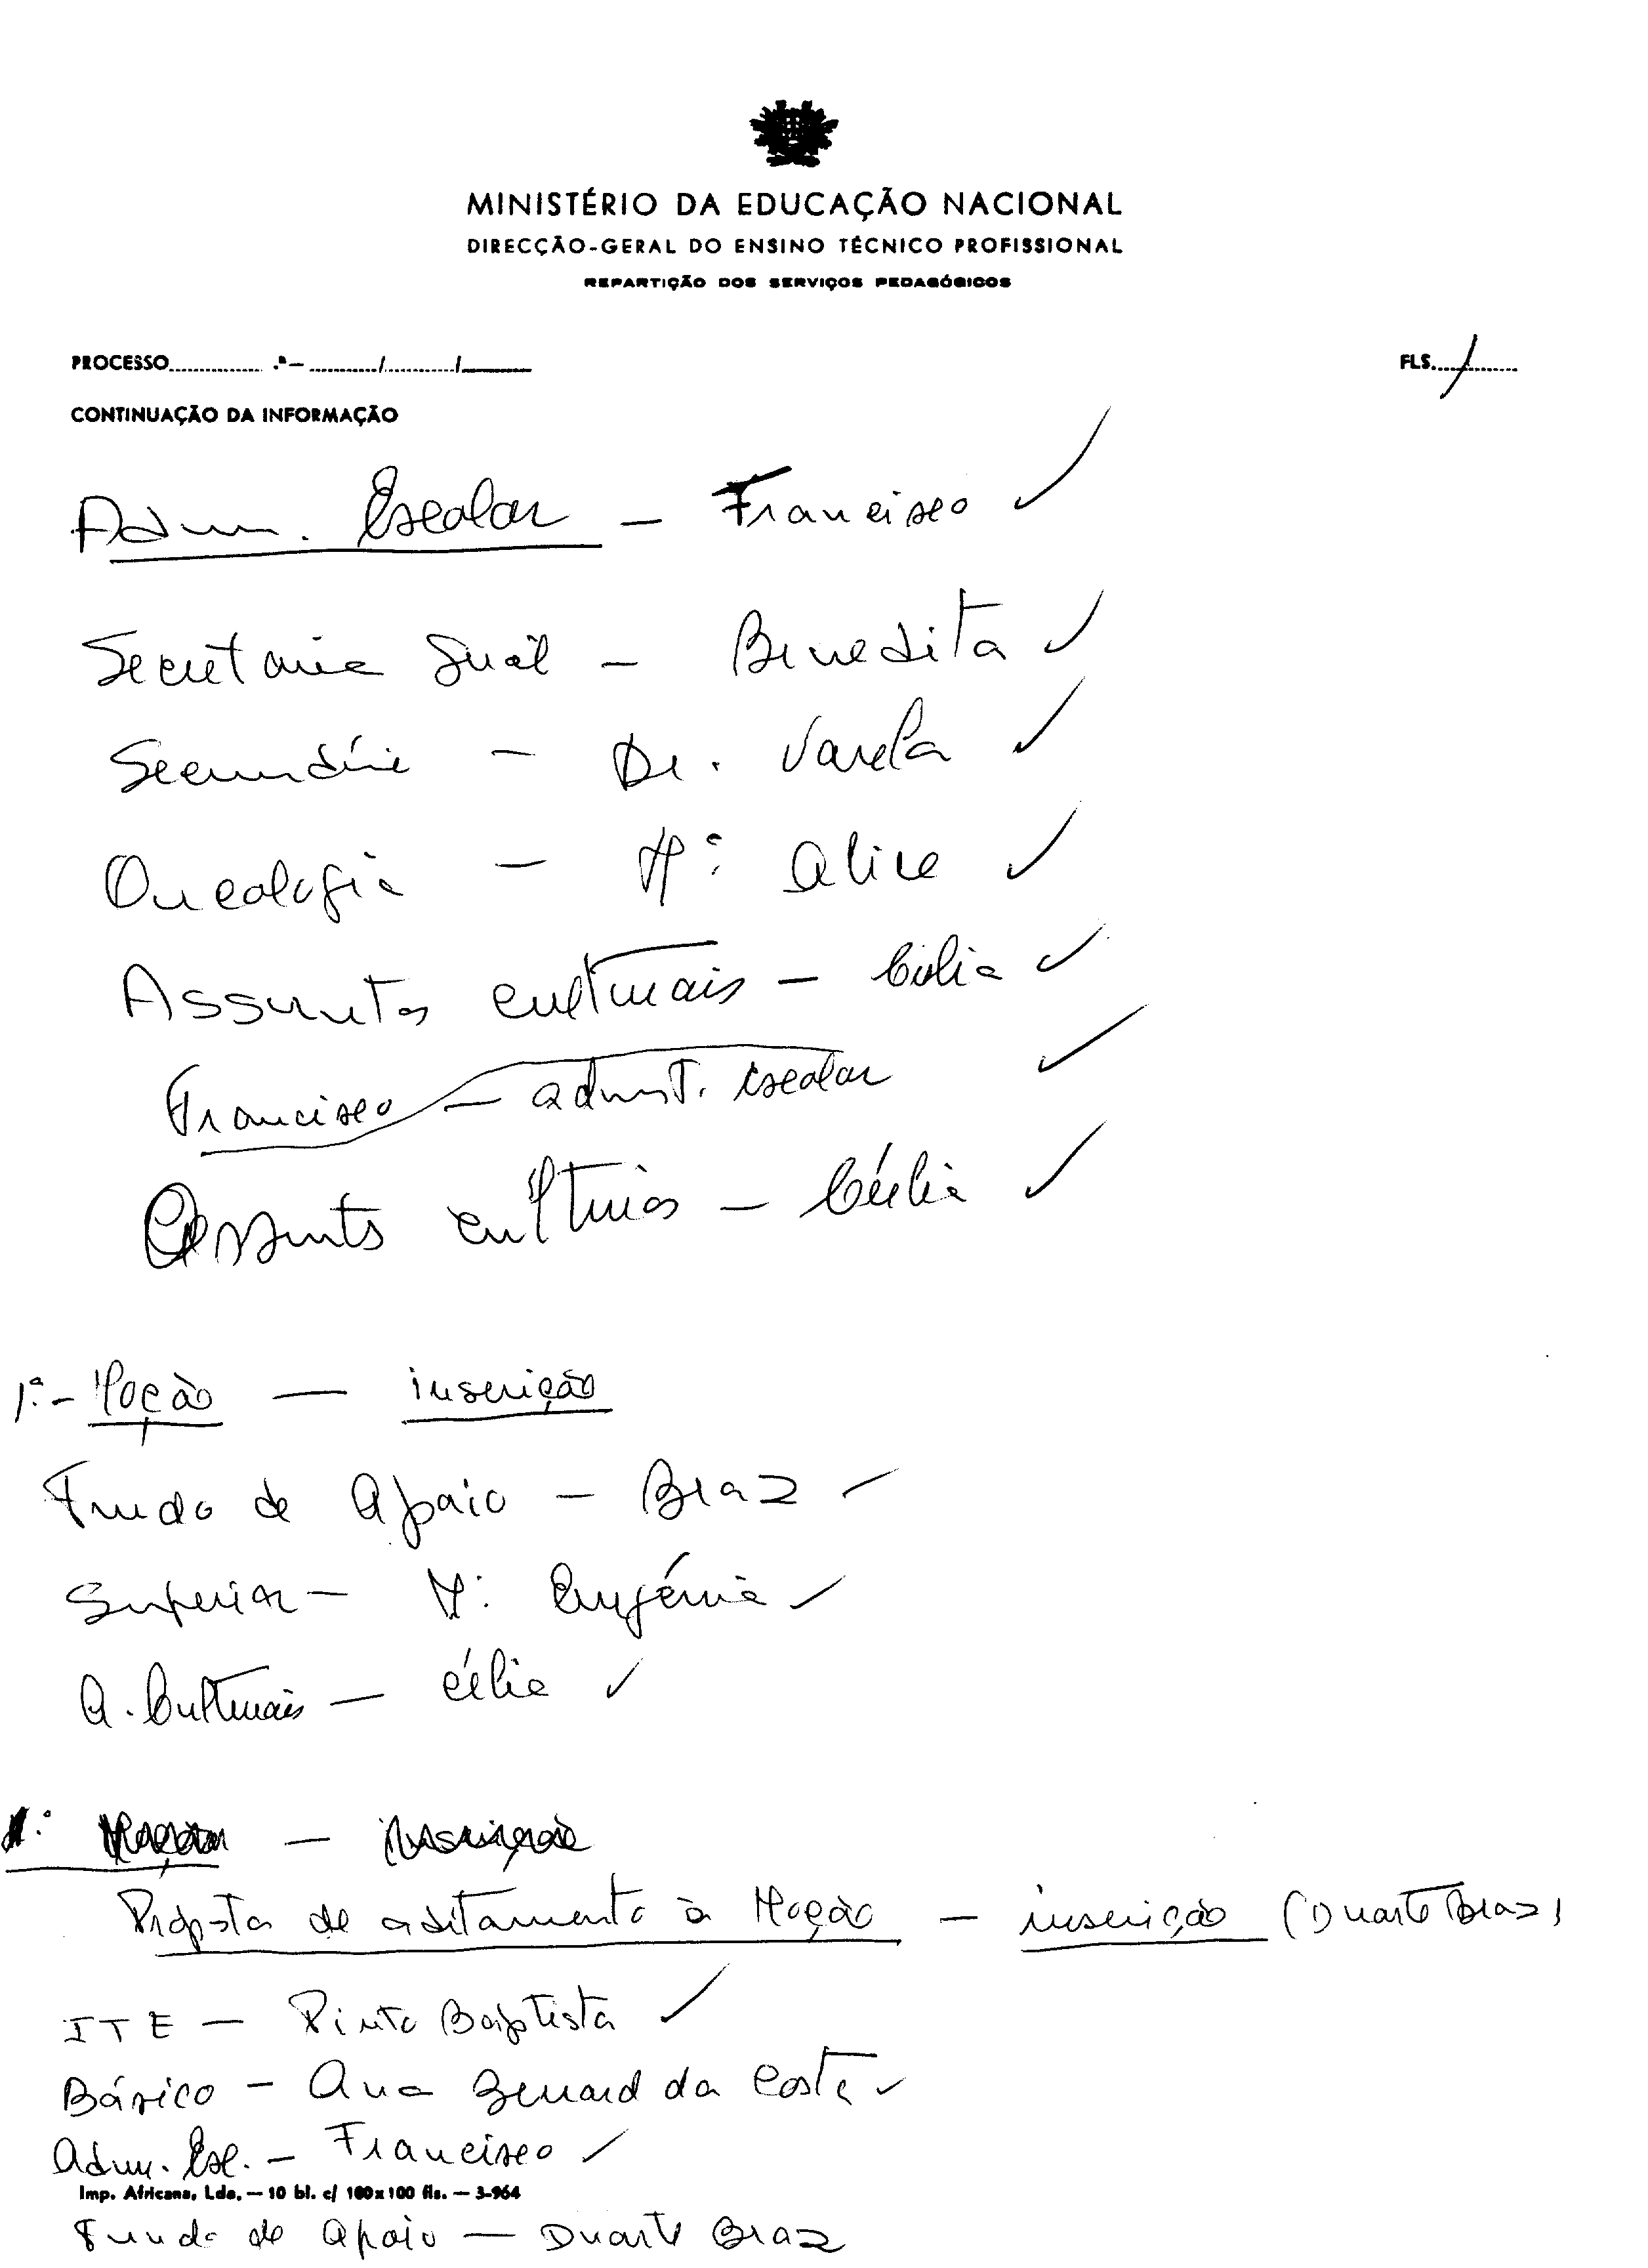 MINISTÉRIO DA EDUCAÇÃO NACIONAL
DIRECÇÃO-GERAL DO ENSINO TÉCNICO PROFISSIONAL
REPARTIÇÃO DOS SERVIÇOS PEDAGÓGICOS
PROCESSO .ª — / /
FLS. /
CONTINUAÇÃO DA INFORMAÇÃO
Adm. Escolar — Francisco ✓
Secretaria Geral — Benedita ✓
Secundário — Dr. Varela ✓
Oncologia — Mª Alice ✓
Assuntos culturais — Célia ✓
Francisco — admist. escolar ✓
Assuntos culturais — Célia ✓
1ª - Moção — inscrição
Fundo de Apoio — Braz ✓
Superior — Mª Eugénia ✓
A. Culturais — Célia ✓
Moção — inscrição
Proposta de aditamento à Moção — inscrição (Duarte Braz)
ITE — Pinto Baptista ✓
Básico — Ana Benard da Costa ✓
Adm. Esc. — Francisco ✓
Imp. Africana, Lda. — 10 bl. c/ 100x100 fls. — 3-964
Fundo de Apoio — Duarte Braz